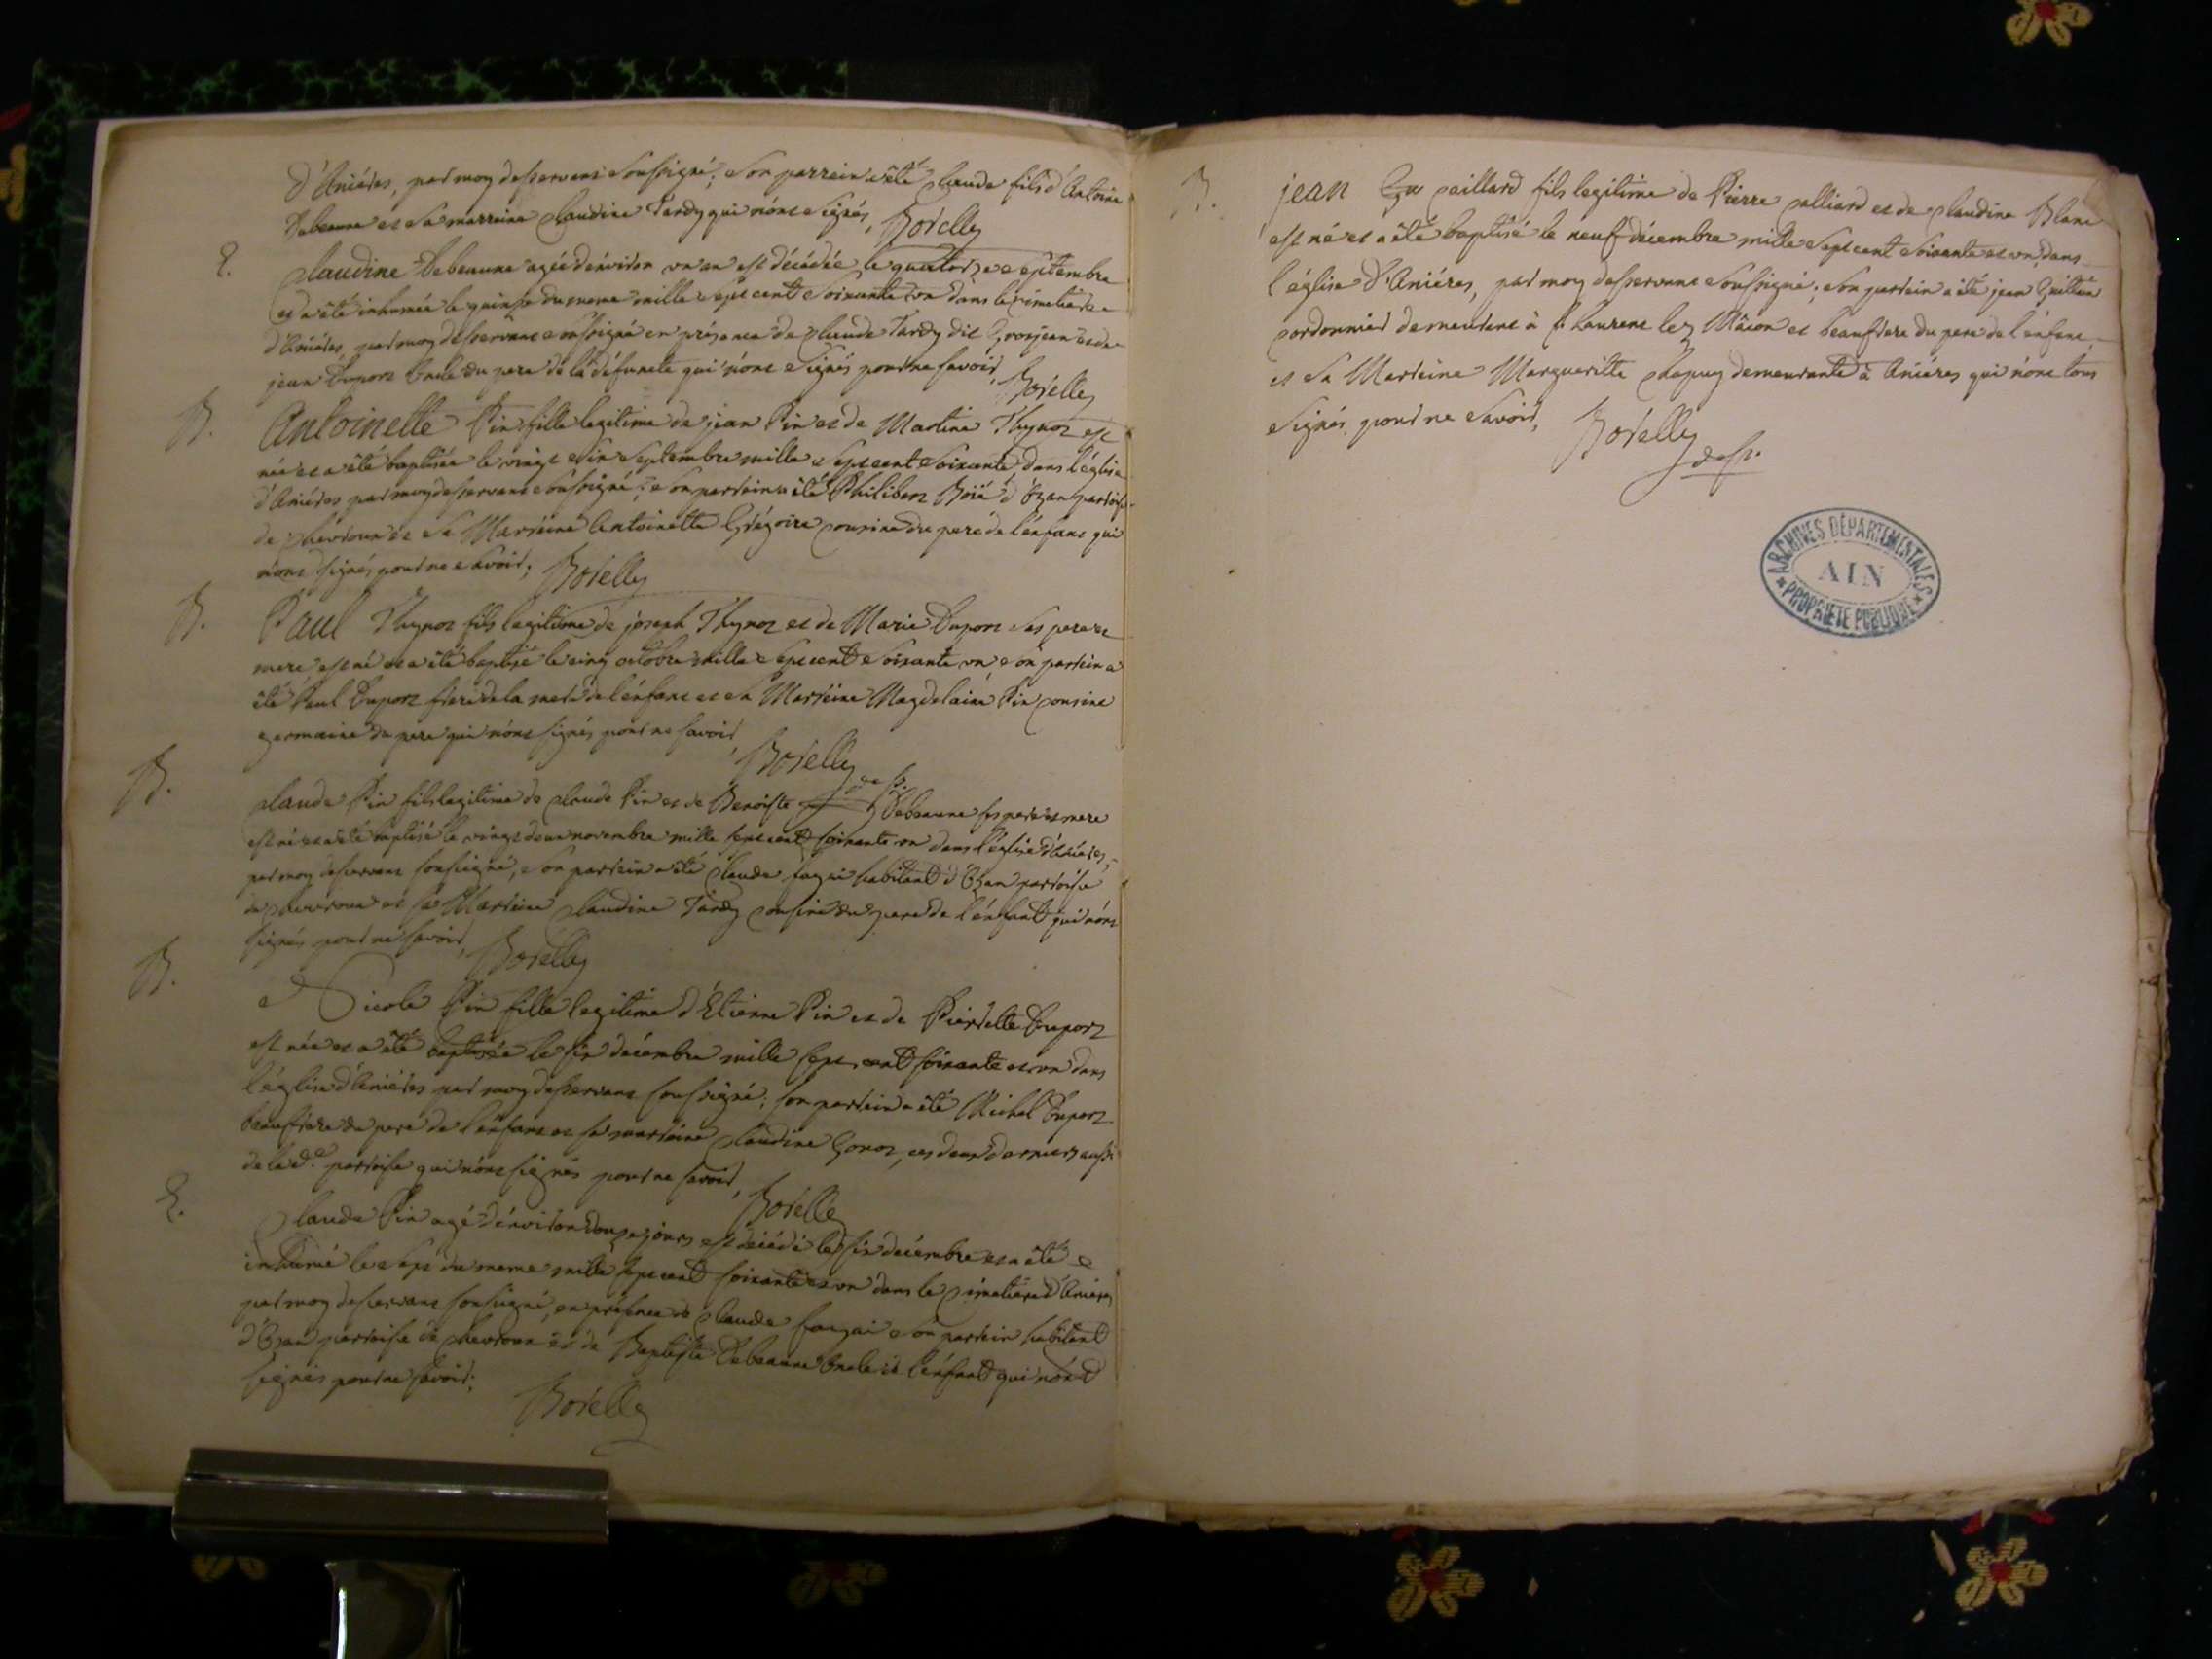 d'Aniéres, par moy desservant soussigné; son parrein a êté Claude fils d'Antoine
Debeaune et sa marreine Claudine Tardy qui n'ont signés, Borelly
E.
Claudine Debeaune agée d'environ un an est décédée le quatorze septembre
et a êté inhumée le quinse du meme mille sept cent soixante un dans le cimetiere
d'Aniéres, par moy desservant soussigné en présence de Claude Tardy dit Grosjean et de
jean Duport Oncle du pere de la défuncte qui n'ont signés pour ne savoir, Borelly
B.
Antoinette Pin fille legitime de jean Pin et de Martine Thynot est
née et a êté baptisée le vingt six septembre mille sept cent soixante, dans l'église
d'Aniéres par moy desservant soussigné; son parrein a êté Philibert Boié d'Ozan parroisse
de Chevroux et sa Marreine Antoinette Grégoire cousine du pere de l'énfant qui
n'ont signés pour ne savoir; Borelly
B.
Paul Thynot fils legitime de joseph Thynot et de Marie Duport ses pere et
mere, est né et a êté baptisé le cinq octobre mille sept cent soixante un son parrein a
êté Paul Duport frere de la mere de l'énfant et sa Marreine Magdelaine Pin cousine
germaine du pere qui n'ont signés pour ne savoir, Borelly
B.
Claude Pin fils legitime de Claude Pin et de Benoiste Debeaune ses pere et mere
est né et a êté baptisé le vingt deux novembre mille sept cent soixante un dans l'église d'Aniéres,
par moy desservant soussigné, son parrein a êté Claude habitant d'Ozan parroisse
de Chevroux et sa Marreine Claudine Tardy cousine du pere de l'énfant qui n'ont
signés pour ne savoir, Borelly
B.
Nicole Pin fille legitime d'Etienne Pin et de Pierrette Duport
est née et a êté baptisée le six décembre mille sept cent soixante et un dans
l'église d'Aniéres par moy desservant soussigné; son parrein a êté Michel Duport
beaufrere du pere de l'énfant et sa marreine Claudine Gonot, ces deux derniers aussi
de la d.e parroisse qui n'ont signés pour ne savoir, Borelly
E.
Claude Pin agé d'énviron douze jours est décédé le six décembre et a êté
inhumé le sept du meme mille sept cent soixante et un dans le cimetiere d'Aniéres
par moy desservant soussigné, en présence de Claude son parrein habitant
d'Ozan parroisse de Chevroux et de Baptiste Debeaune Oncle de l'énfant qui n'ont
signés pour ne savoir; Borelly
B.
jean Caillard fils legitime de Pierre Calliard et de Claudine Blanc
est né et a êté baptisé le neuf décembre mille sept cent soixante et un, dans
l'église d'Aniéres, par moy desservant soussigné; son parrein a êté jean
cordonnier demeurant à St. Laurent lez Mâcon et beaufrere du pere de l'énfant,
et sa Marreine Margueritte Chapuy demeurante à Aniéres qui n'ont tous
signés pour ne savoir, Borelly
dess.
ARCHIVES DÉPARTEMENTALES
AIN
PROPRIÉTÉ PUBLIQUE